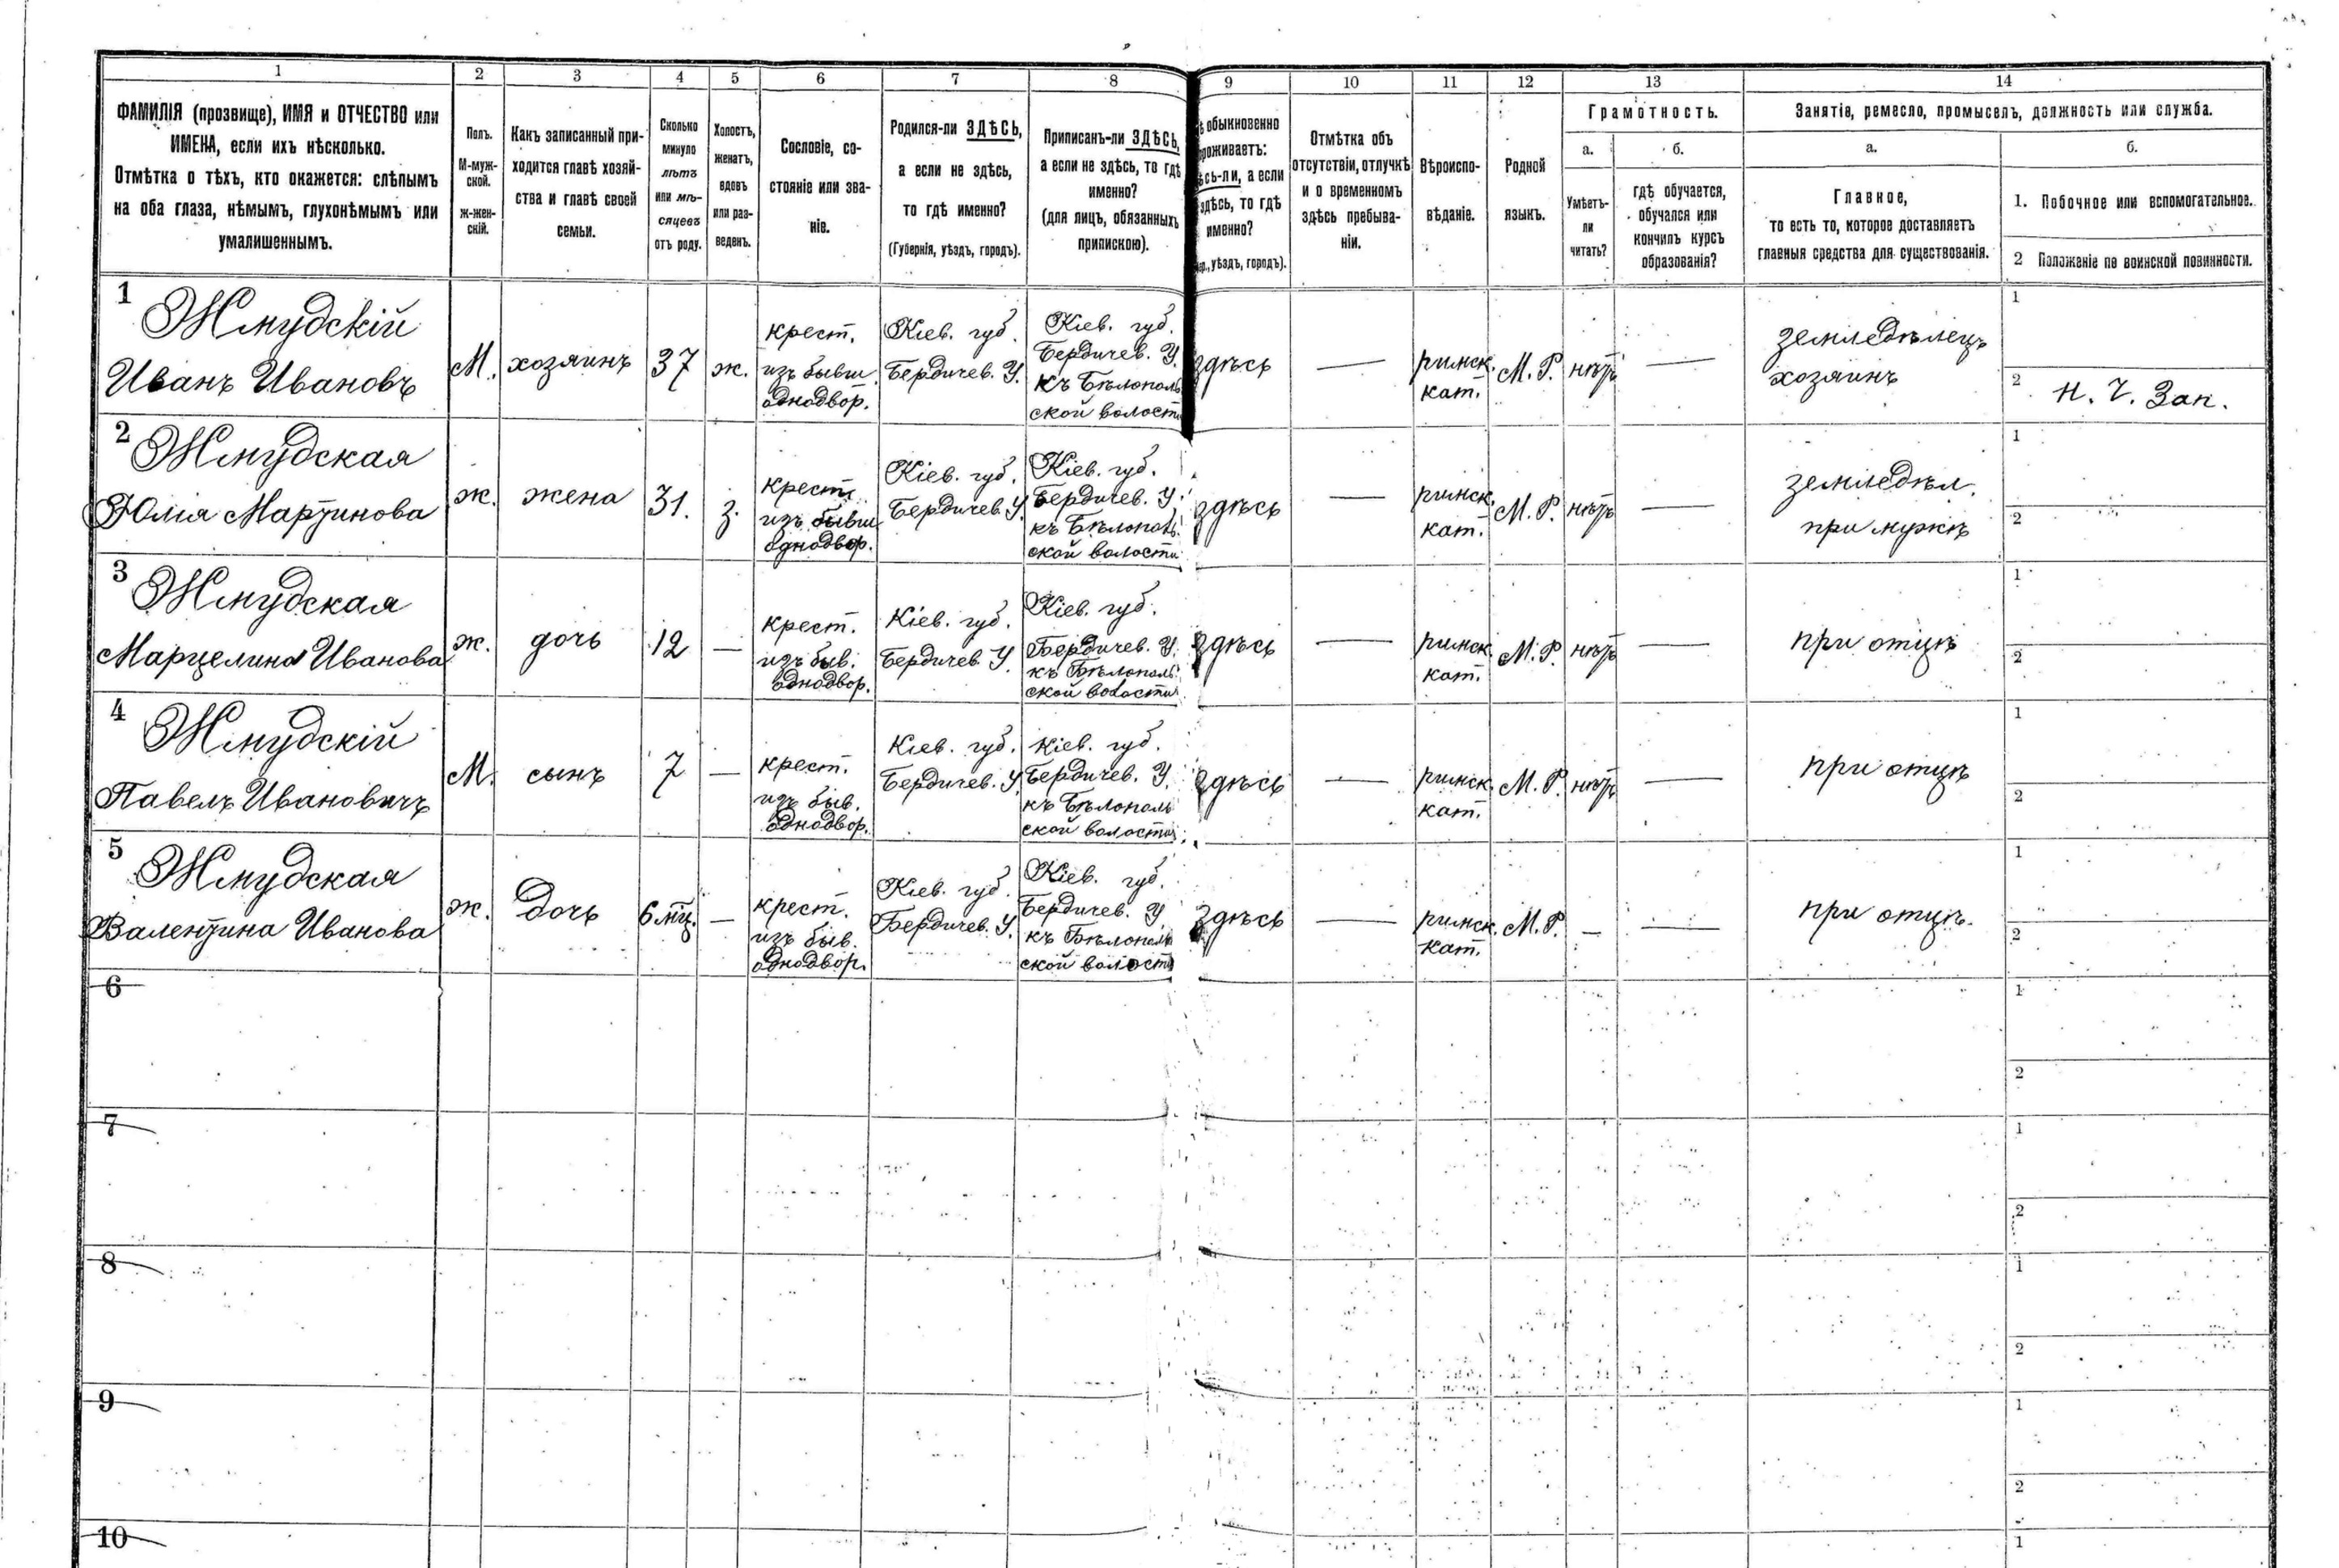 1 2 3 4 5 6 7 8 9 10 11 12 13 14
ФАМИЛІЯ (прозвище), ИМЯ и ОТЧЕСТВО или
ИМЕНА, если ихъ нѣсколько.
Отмѣтка о тѣхъ, кто окажется: слѣпымъ
на оба глаза, нѣмымъ, глухонѣмымъ или
умалишеннымъ.
Полъ.
М-муж-
ской.
Ж-жен-
скій.
Какъ записанный при-
ходится главѣ хозяй-
ства и главѣ своей
семьи.
Сколько
минуло
лѣтъ
или мѣ-
сяцевъ
отъ роду.
Холостъ,
женатъ,
вдовъ
или раз-
веденъ.
Сословіе, со-
стояніе или зва-
ніе.
Родился-ли ЗДѢСЬ,
а если не здѣсь,
то гдѣ именно?
(Губернія, уѣздъ, городъ).
Приписанъ-ли ЗДѢСЬ,
а если не здѣсь, то гдѣ
именно?
(для лицъ, обязанныхъ
припискою).
обыкновенно
роживаетъ:
сь-ли, а если
здѣсь, то гдѣ
именно?
уѣздъ, городъ).
Отмѣтка объ
отсутствіи, отлучкѣ
и о временномъ
здѣсь пребыва-
ніи.
Вѣроиспо-
вѣданіе.
Родной
языкъ.
Грамотность.
а.
Умѣетъ-
ли
читать?
б.
гдѣ обучается,
обучался или
кончилъ курсъ
образованія?
Занятіе, ремесло, промыселъ, должность или служба.
а.
Главное,
то есть то, которое доставляетъ
главныя средства для существованія.
б.
1. Побочное или вспомогательное.
2 Положеніе по воинской повинности.
1
Жмудскій
Иванъ Ивановъ
М.
хозяинъ
37
ж.
крест.
изъ бывш.
однодвор.
Кіев. губ.
Бердичев. У.
Кіев. губ.
Бердичев. У.
къ Бѣлополь
ской волости
здѣсь
—
римск.
кат.
М. Р.
нѣтъ
—
земледѣлецъ
хозяинъ
1
2 н. ч. Зап.
2
Жмудская
Юлія Мартинова
ж.
жена
31.
з.
крест.
изъ бывш
однодвор.
Кіев. губ.
Бердичев. У.
Кіев. губ.
Бердичев. У.
къ Бѣлополь
ской волости
здѣсь
—
римск.
кат.
М. Р.
нѣтъ
—
земледѣл.
при мужѣ
1
2
3
Жмудская
Марцелина Иванова
ж.
дочь
12
—
крест.
изъ быв.
однодвор.
Кіев. губ.
Бердичев. У.
Кіев. губ.
Бердичев. У.
къ Бѣлополь
ской волости
здѣсь
—
римск.
кат.
М. Р.
нѣтъ
—
при отцѣ
1
2
4
Жмудскій
Павелъ Ивановичъ
М.
сынъ
7
—
крест.
изъ быв.
однодвор.
Кіев. губ.
Бердичев. У.
Кіев. губ.
Бердичев. У.
къ Бѣлополь
ской волости
здѣсь
—
римск.
кат.
М. Р.
нѣтъ
—
при отцѣ
1
2
5
Жмудская
Валентина Иванова
ж.
Дочь
6 мц.
—
крест.
изъ быв.
однодвор.
Кіев. губ.
Бердичев. У.
Кіев. губ.
Бердичев. У.
къ Бѣлополь
ской волости
здѣсь
—
римск.
кат.
М. Р.
—
—
при отцѣ.
1
2
6
1
2
7
1
2
8
1
2
9
1
2
10
1